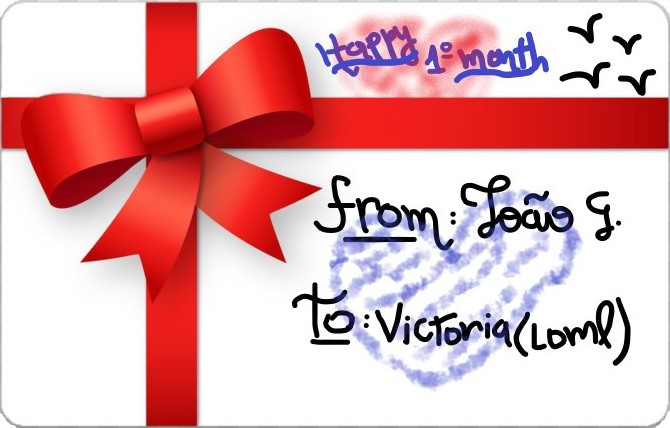 Happy 1º month
From: João G.
To: Victoria (Loml)